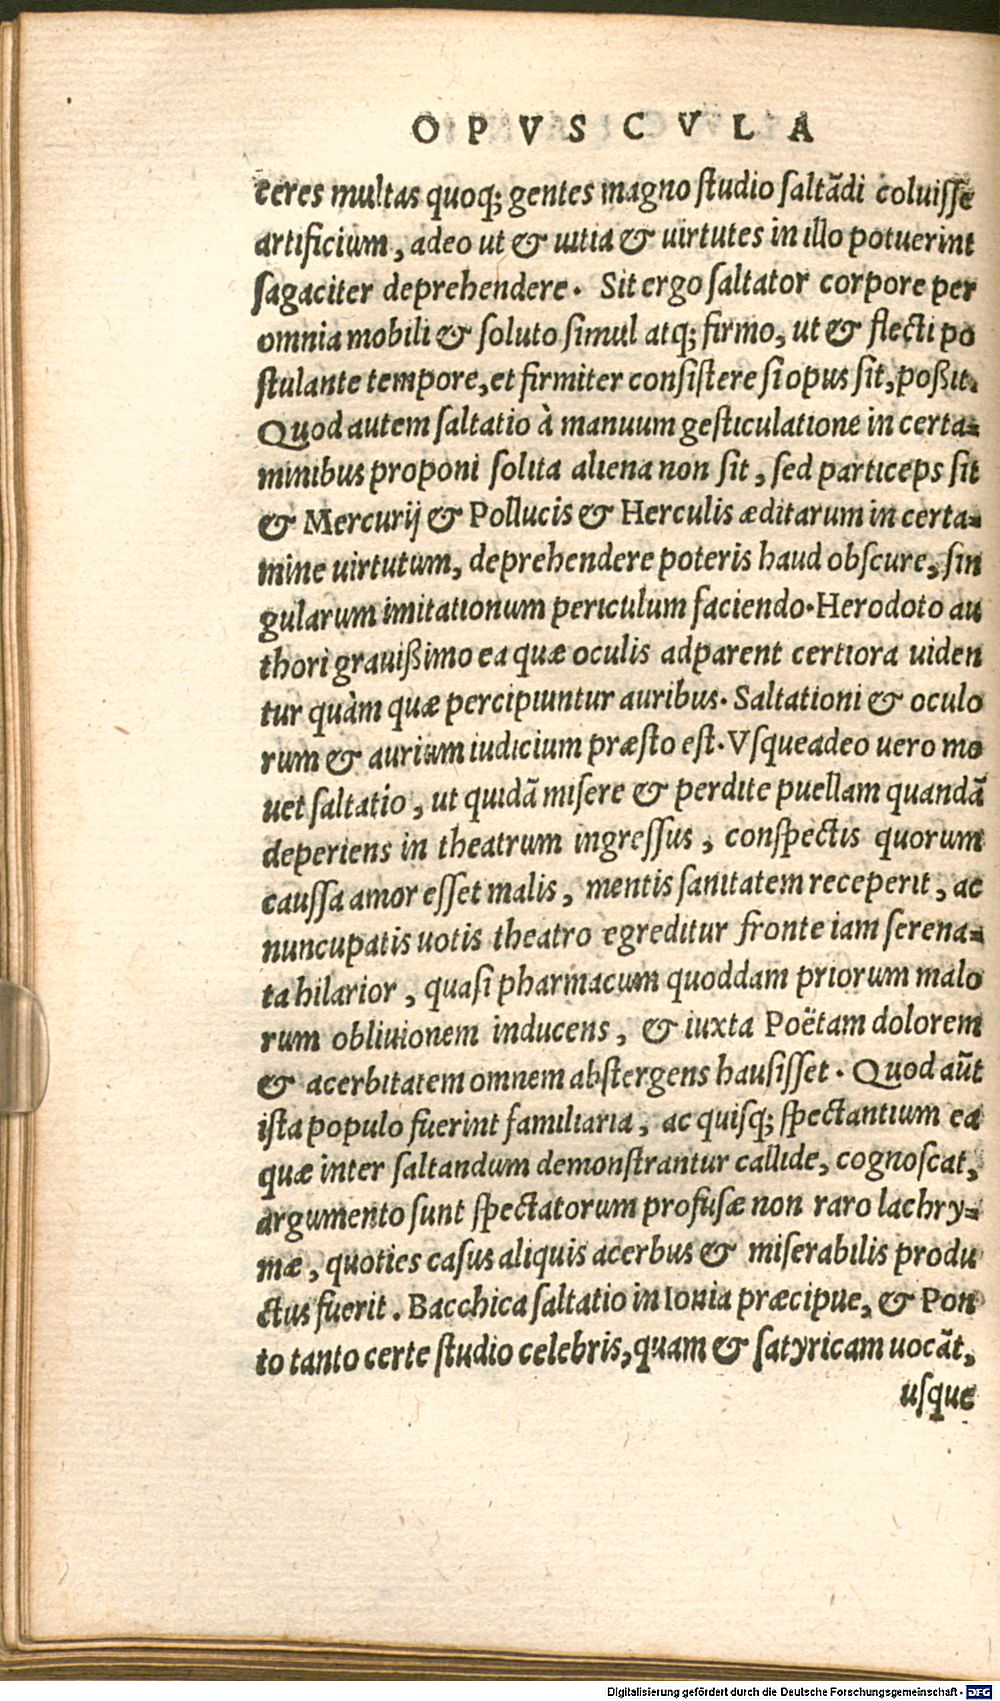 O P V S C V L A
ceres multas quoq; gentes magno ſtudio ſaltãdi coluiſſe
artificium, adeo ut & uitia & uirtutes in illo potuerint
ſagaciter deprehendere. Sit ergo ſaltator corpore per
omnia mobili & ſoluto ſimul atq; firmo, ut & flecti po
ſtulante tempore, et firmiter conſiſtere ſi opus ſit, poßit.
Quod autem ſaltatio à manuum geſticulatione in certa-
minibus proponi ſolita aliena non ſit, ſed particeps ſit
& Mercurij & Pollucis & Herculis æditarum in certa-
mine uirtutum, deprehendere poteris haud obſcure, ſin
gularum imitationum periculum faciendo. Herodoto au
thori grauißimo ea quæ oculis adparent certiora uiden
tur quàm quæ percipiuntur auribus. Saltationi & oculo
rum & aurium iudicium præſto eſt. Vſqueadeo uero mo
uet ſaltatio, ut quidã miſere & perdite puellam quandã
deperiens in theatrum ingreſſus, conſpectis quorum
cauſſa amor eſſet malis, mentis ſanitatem receperit, ac
nuncupatis uotis theatro egreditur fronte iam ſerena-
ta hilarior, quaſi pharmacum quoddam priorum malo
rum obliuionem inducens, & iuxta Poëtam dolorem
& acerbitatem omnem abſtergens hauſiſſet. Quod aũt
iſta populo fuerint familiaria, ac quiſq; ſpectantium ea
quæ inter ſaltandum demonſtrantur callide, cognoſcat,
argumento ſunt ſpectatorum profuſæ non raro lachry-
mæ, quoties caſus aliquis acerbus & miſerabilis produ
ctus fuerit. Bacchica ſaltatio in Ionia præcipue, & Pon
to tanto certe ſtudio celebris, quam & ſatyricam uocãt,
uſque
Digitalisierung gefördert durch die Deutsche Forschungsgemeinschaft - DFG